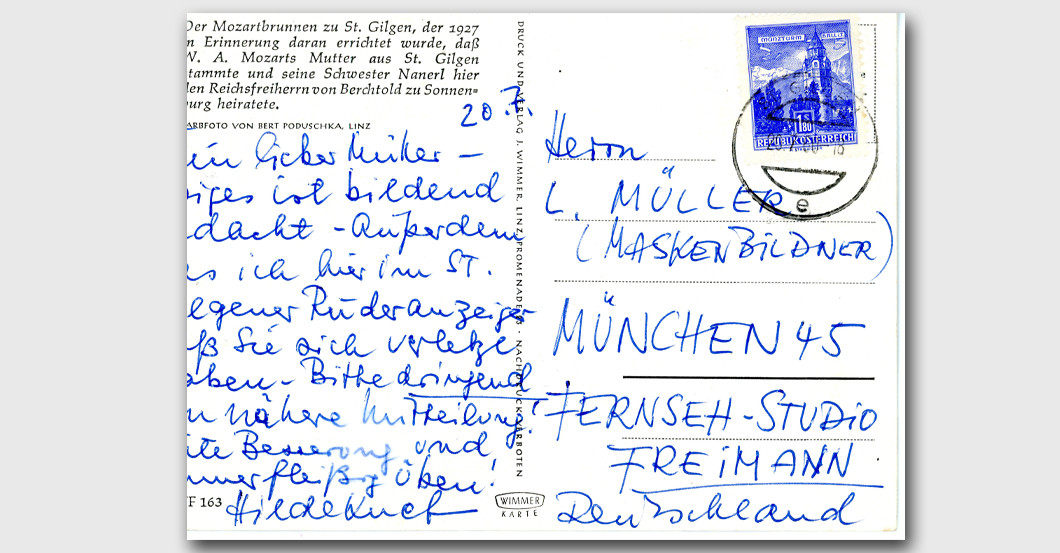 Der Mozartbrunnen zu St. Gilgen, der 1927
n Erinnerung daran errichtet wurde, daß
W. A. Mozarts Mutter aus St. Gilgen
tammte und seine Schwester Nanerl hier
den Reichsfreiherrn von Berchtold zu Sonnen=
urg heiratete.
ARBFOTO VON BERT PODUSCHKA, LINZ
20. 7.
ein lieber Müller –
iges ist bildend
dacht – Außerdem
es ich hier im ST.
ilgener Ruderanzeiger
ß Sie sich verletzt
aben – Bitte dringend
n nähere Mitteilung!
ute Besserung und
mmer fleißig Üben!
Hilde Knef
F 163
DRUCK UND VERLAG J. WIMMER, LINZ, PROMENADE · NACHDRUCK VERBOTEN
WIMMER
KARTE
MÜNZTURM HALL I. T.
1.80
REPUBLIK ÖSTERREICH
e
Herrn
L. MÜLLER
(MASKENBILDNER)
MÜNCHEN 45
FERNSEH-STUDIO
FREIMANN
Deutschland